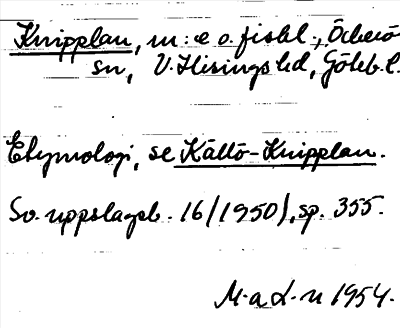 Knipplan, in: e o. fiskl., Öckerö
sn, V. Hisings hd, Göteb. l.
Etymologi, se Källö-Knipplan.
Sv. uppslagsb. 16 (1950), sp. 355.
M. a d. n 1954.